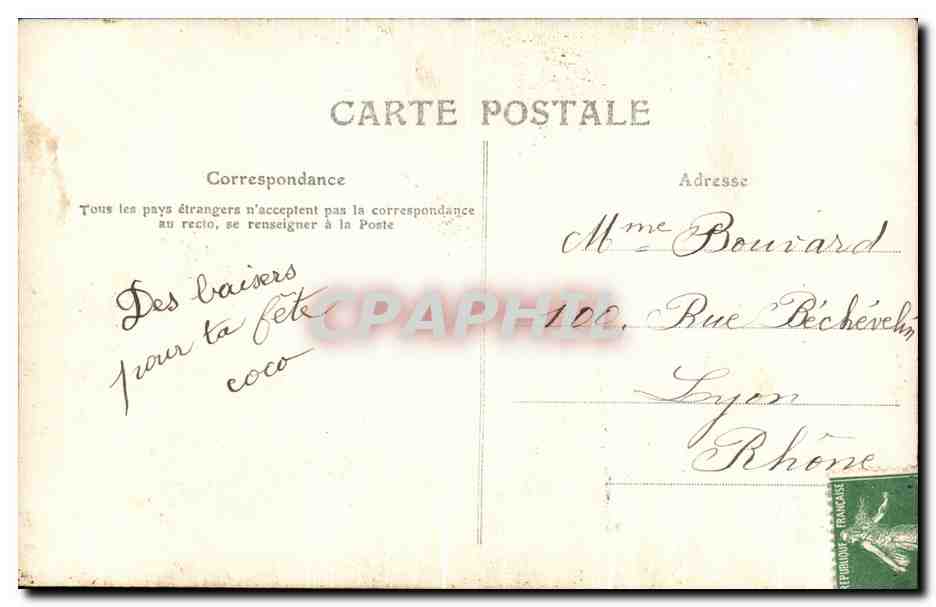 CARTE POSTALE
Correspondance
Tous les pays étrangers n'acceptent pas la correspondance
au recto, se renseigner à la Poste
Des baisers
pour ta fête
coco
Adresse
Mme Bouvard
100, Rue Béchévelin
Lyon
Rhône
CPAPHIL
REPUBLIQUE FRANÇAISE